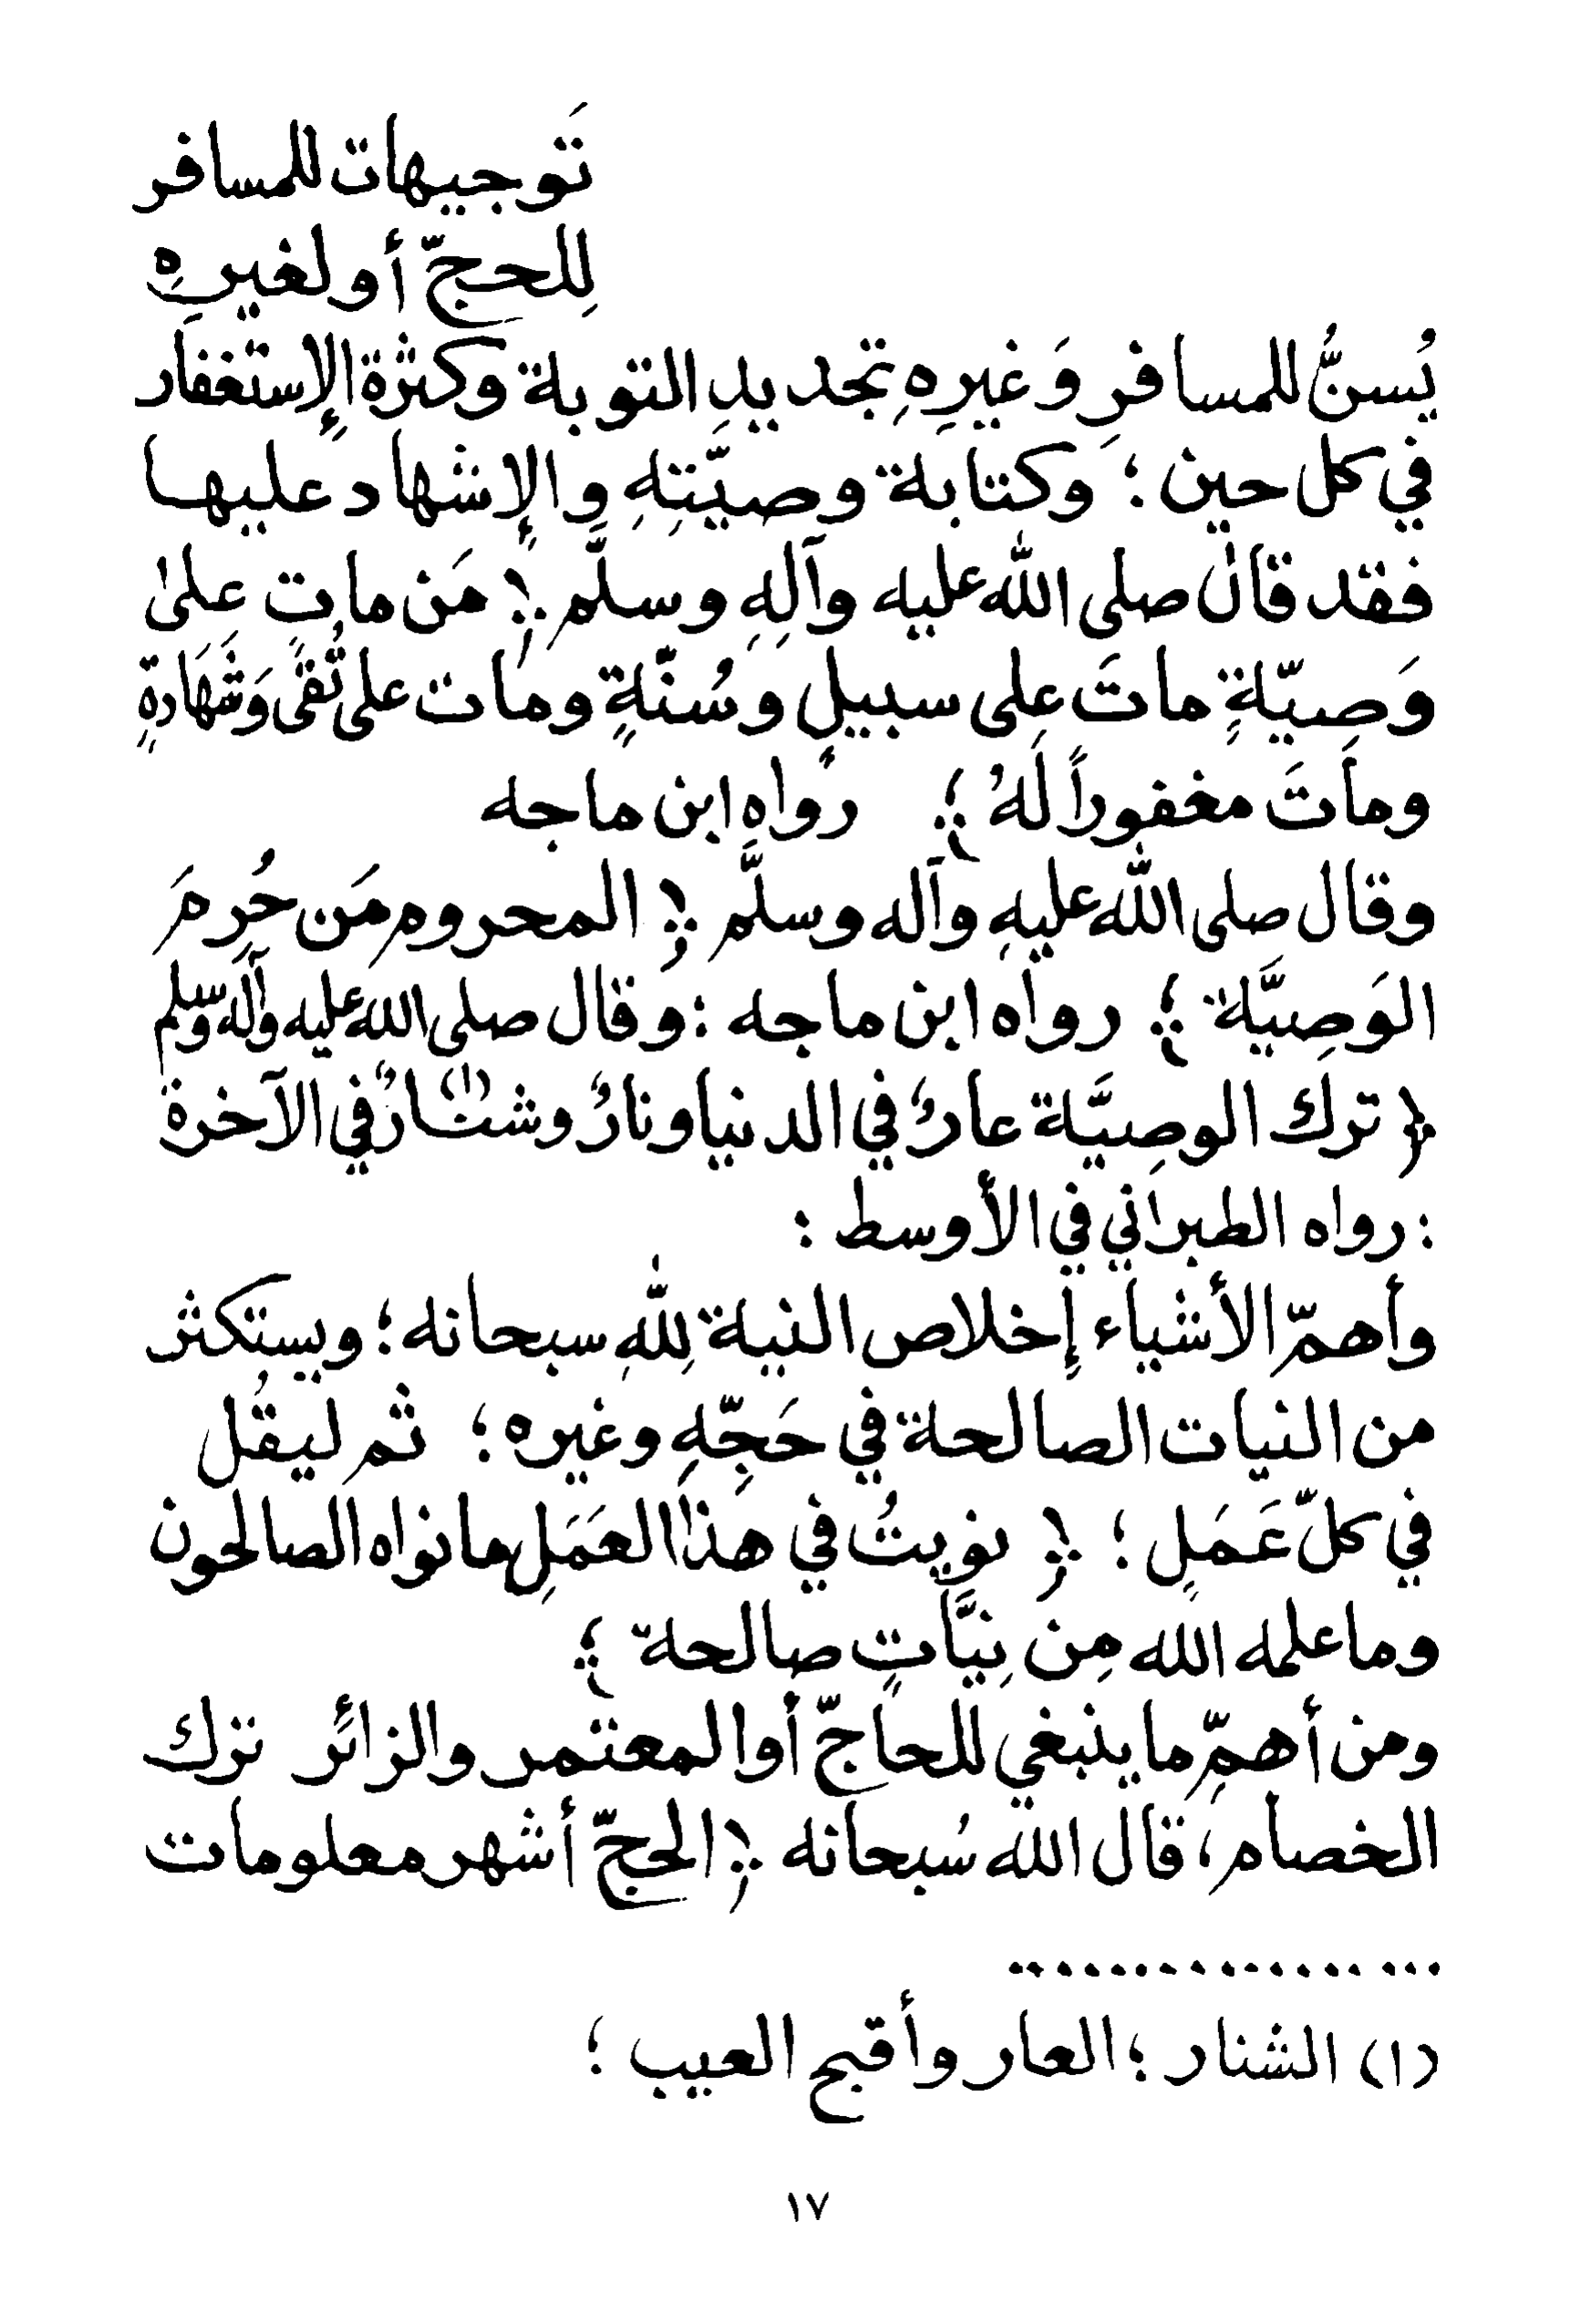 تَوجيهات للمسافر
لِلحجّ أو لغيرِه
يُسنُّ للمسافرِ وَغيرِهِ تجديد التوبة وكثرة الإستغفار
في كل حين؛ وَكتابة وصيَّتِهِ والإشهاد عليها
فقد قال صلى الله عليه وآلِهِ وسلَّم ﴿ مَن مات على
وَصيّةٍ ماتَ على سبيلٍ وَسُنّةٍ ومات على تُقىً وَشَهَادةٍ
وماتَ مغفوراً لَهُ ﴾ رواه ابن ماجه
وقال صلى الله عليهِ وآله وسلَّم ﴿ المحروم مَن حُرِمَ
الوَصِيَّة ﴾ رواه ابن ماجه : وقال صلى الله عليه وآله وسلم
﴿ ترك الوصِيَّة عارٌ في الدنيا ونارٌ وشنارٌ(١) في الآخرة
: رواه الطبراني في الأوسط :
وأهمّ الأشياء إخلاص النية لِلّهِ سبحانه؛ ويستكثر
من النيات الصالحة في حَجِّهِ وغيره؛ ثم ليقُل
في كلّ عَمَلٍ؛ ﴿ نويتُ في هذا العَمَلِ ما نواه الصالحون
وما علمه الله مِن نِيَّاتٍ صالحة ﴾
ومن أهمِّ ما ينبغي للحاجّ أو المعتمر والزائر ترك
الخصام، قال الله سُبحانه ﴿ الحجّ أشهر معلومات
.................
(١) الشنار؛ العار وأقبح العيب؛
١٧